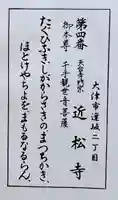 大津市逢坂二丁目
第四番 天台寺門宗 近松寺
御本尊 千手観世音菩薩
たゞひふきしがからさきのまつちかき、
ほとけやちよをまもるなるらん、